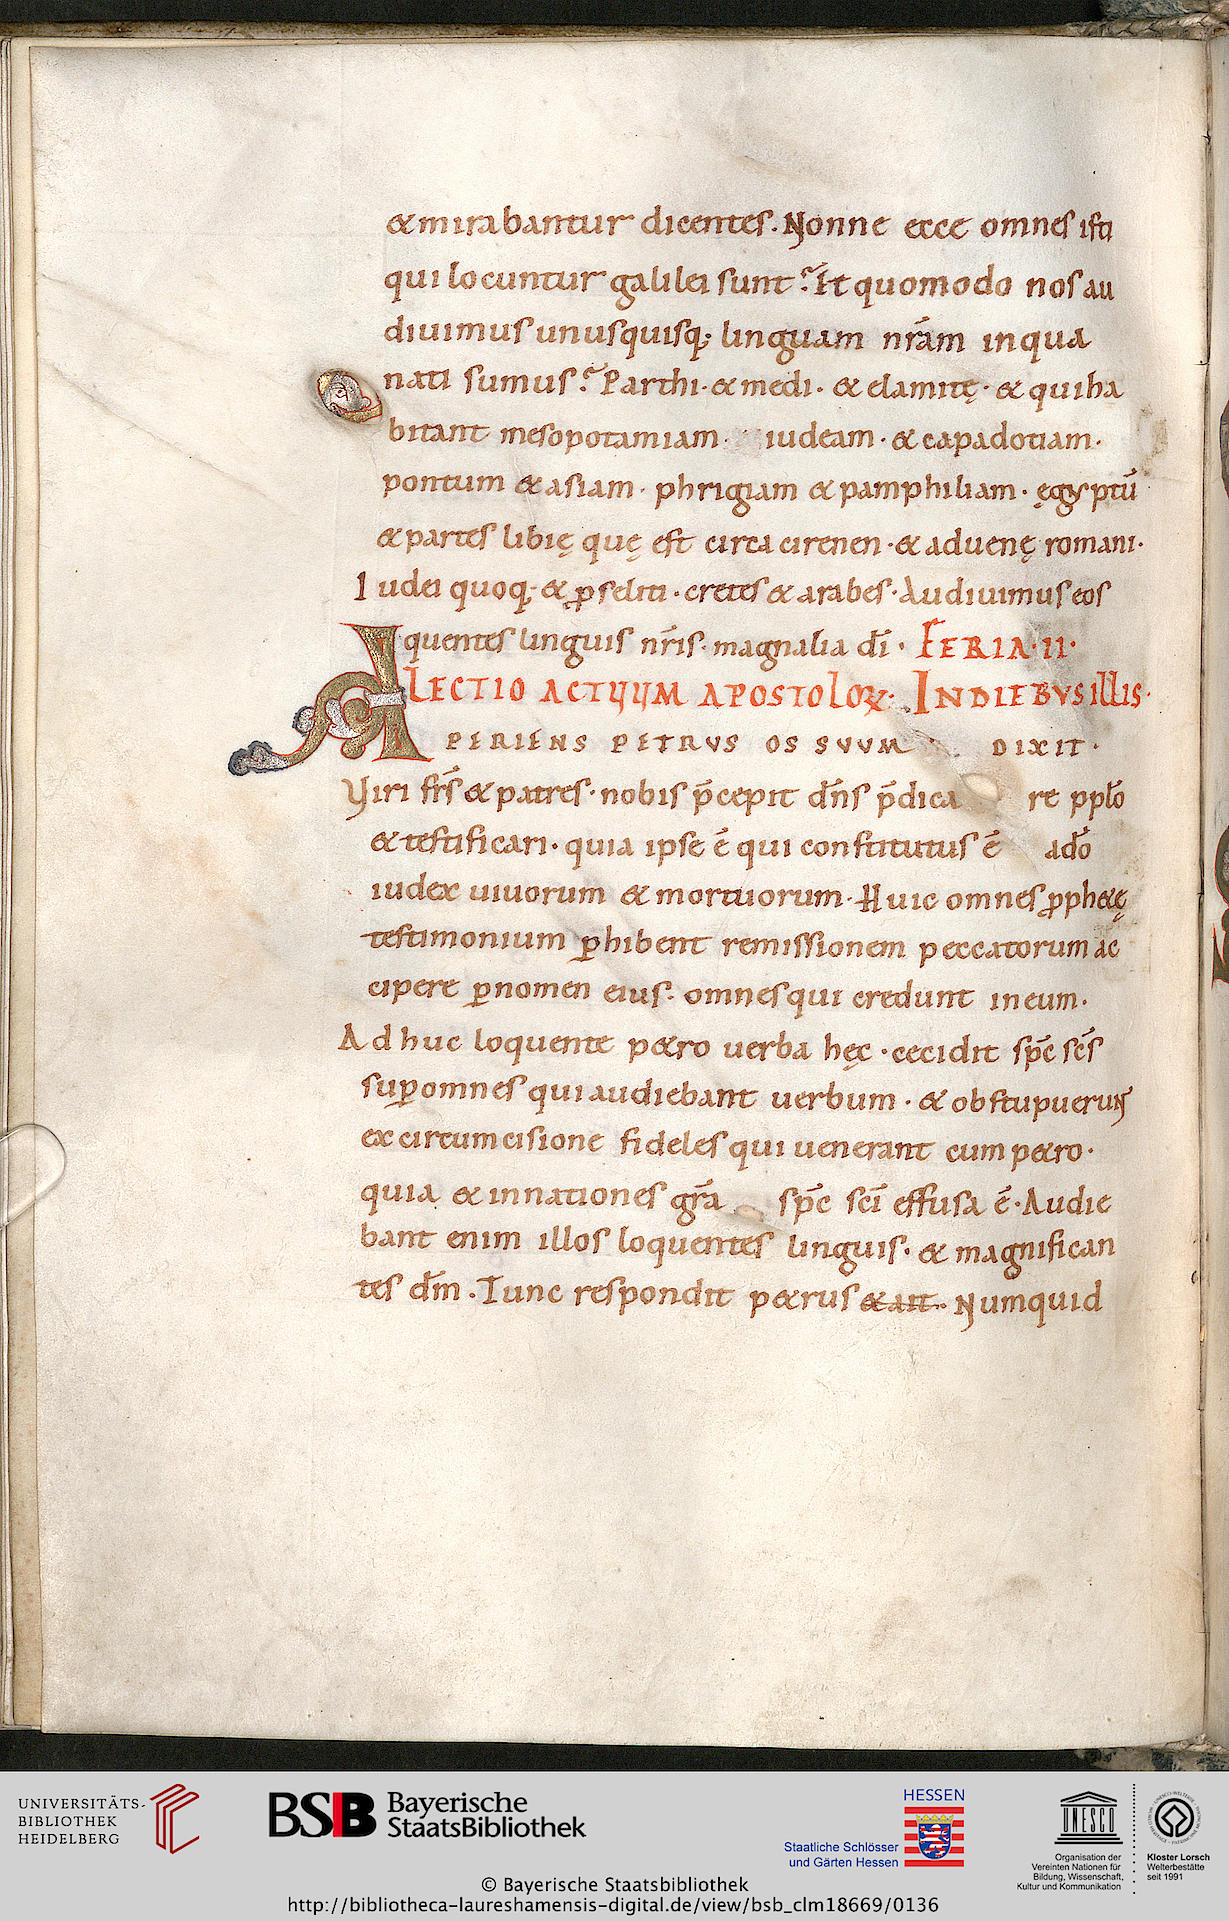 &mirabantur dicentes. Nonne ecce omnes isti
qui locuntur galilei sunt? Et quomodo nos au
diuimus unusquisq; linguam nr̄am inqua
nati sumus? Parthi· & medi· & elamitę· & quiha
bitant mesopotamiam· iudeam· & capadotiam·
pontum & asiam· phrigiam & pamphiliam· ęgyptū
& partes libię quę est circa cirenen· & aduenę romani·
Iudei quoq; & ꝓseliti· cretes & arabes· Audiuimus eos
quentes linguis nr̄is· magnalia dī· FERIA·II·
LECTIO ACTUUM APOSTOLOꝜ· INDIEBUS ILLIS·
APERIENS PETRUS OS SUUM DIXIT·
Viri fr̄s & patres· nobis p̄cepit dn̄s p̄dica re pplō
& testificari· quia ipse ē qui constitutus ē adō
iudex uiuorum & mortuorum· Huic omnes ꝓph&ę
testimonium ꝑhibent remissionem peccatorum ac
cipere ꝑnomen eius· omnes qui credunt ineum·
Adhuc loquente p&ro uerba hęc· cecidit sp̄c sc̄s
suꝑomnes qui audiebant uerbum· & obstupuerunt
excircumcisione fideles qui uenerant cum p&ro·
quia & innationes gr̄a sp̄c sc̄i effusa ē· Audie
bant enim illos loquentes linguis· & magnifican
tes dm̄· Tunc respondit p&rus & ait· Numquid
UNIVERSITÄTS-
BIBLIOTHEK
HEIDELBERG
BSB Bayerische
StaatsBibliothek
HESSEN
Staatliche Schlösser
und Gärten Hessen
UNESCO
Organisation der
Vereinten Nationen für
Bildung, Wissenschaft,
Kultur und Kommunikation
Kloster Lorsch
Welterbestätte
seit 1991
© Bayerische Staatsbibliothek
http://bibliotheca-laureshamensis-digital.de/view/bsb_clm18669/0136